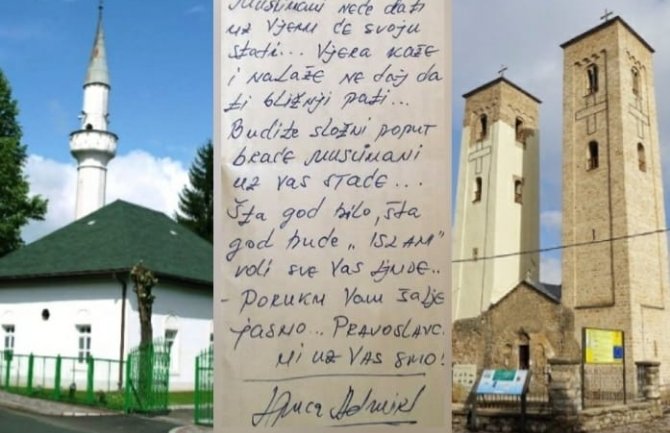 MUSLIMANI NEĆE DATI
UZ VJERU ĆE SVOJU
STATI... VJERA KAŽE
I NALAŽE NE DAJ DA
TI BLIŽNJI PATI...
BUDITE SLOŽNI POPUT
BRAĆE MUSLIMANI
UZ VAS STAĆE...
ŠTA GOD BILO, ŠTA
GOD BUDE „ISLAM"
VOLI SVE VAS LJUDE..
- PORUKU VAM ŠALJE
JASNO... PRAVOSLAVC.
MI UZ VAS SMO!